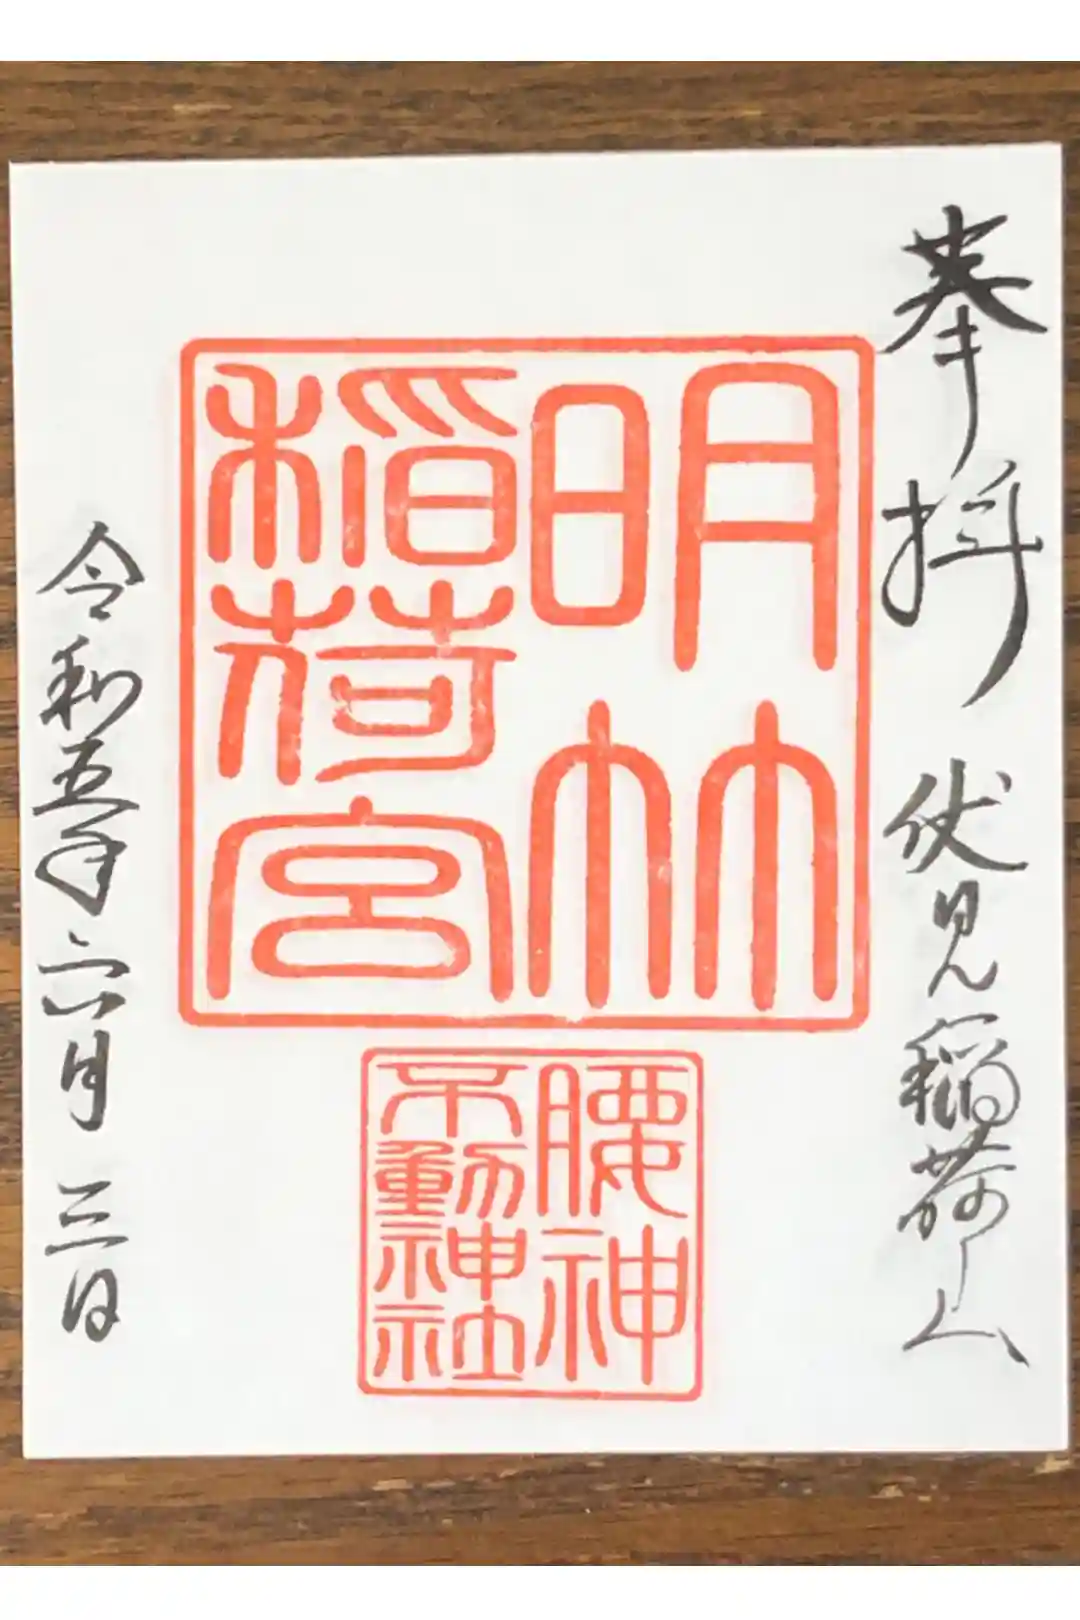 奉拝 伏見稲荷山
明竹
稲荷宮
腰神
不動神社
令和五年六月三日